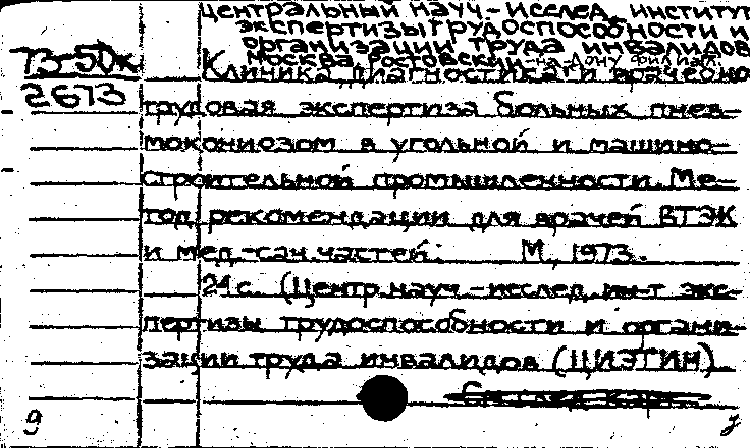 Центральный науч.-исслед. институт
экспертизы трудоспособности и
организации труда инвалидов
Москва, Ростовский-на-Дону филиал.
73-50к
Клиника, диагностика и врачебно-
2673
трудовая экспертиза больных пнев-
мокониозом в угольной и машино-
строительной промышленности. Ме-
тод. рекомендации для врачей ВТЭК
и мед.-сан. частей. М., 1973.
24 с. (Центр. науч.-исслед. ин-т экс-
пертизы трудоспособности и органи-
зации труда инвалидов (ЦИЭТИН).
См. след. карт.
9